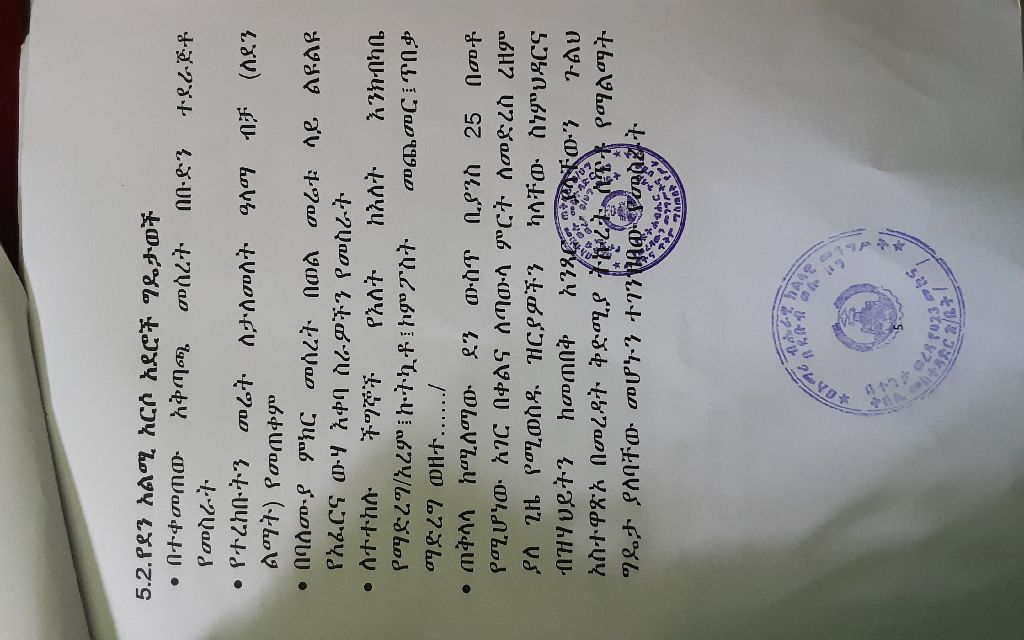 5.2. የደን አልሚ አርሶ አደሮች ግዴታወች
• በተቀመጠው አቅጣጫ መሰረት በቡድን ተደራጅቶ
የመስራት
• የተረከቡትን መሬት ለታለመለት ዓላማ ብቻ (ለደን
ልማት) የመጠቀም
• በባለሙያ ምክር መሰረት በወል መሬቱ ላይ ልዩልዩ
የአፈርና ውሃ እቀባ ስራዎችን የመስራት
• ለተተከሉ ችግኞች የእለት ከእለት እንክብካቤ
የማድረግ/አረም፤ኩትኳቶ፤ከምፖስት መጨመር፤ጥበቃ
ማድረግ ወዘተ……/
• ጠቅላላ ከሚለማው ደን ውስጥ ቢያንስ 25 በመቶ
የሚሆነው አገር በቀልና ለጣውላ ምርት ለመድረስ ረዘም
ያለ ጊዜ የሚወስዱ ዝርያዎችን ከላቸው ስነምህዳርና
ብዝሃህይትን ከመጠበቅ አንጻር ያላቸውን ጉልህ
አስተዋጽኦ በመረዳት ቅድሚያ ትኩረት ሰጥቶ የማልማት
ግዴታ ያለባቸው መሆኑን ተገንዝበው የመስራት
5